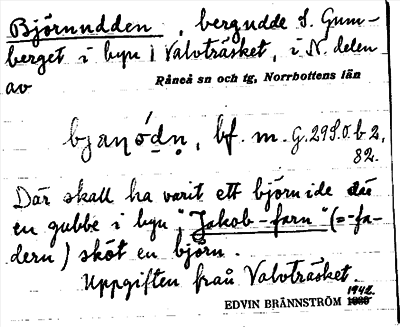 Björnudden, bergudde S. Gum-
berget i byn Valvträsket, i N. delen
av
Råneå sn och tg, Norrbottens län
bjaṇó̱dṇ, bf. m. G.299.0.b 2,
82.
Där skall ha varit ett björnide där
en gubbe i byn "Jakob-farn" (=-fa-
dern) sköt en björn.
Uppgiften från Valvträsket.
1942.
EDVIN BRÄNNSTRÖM